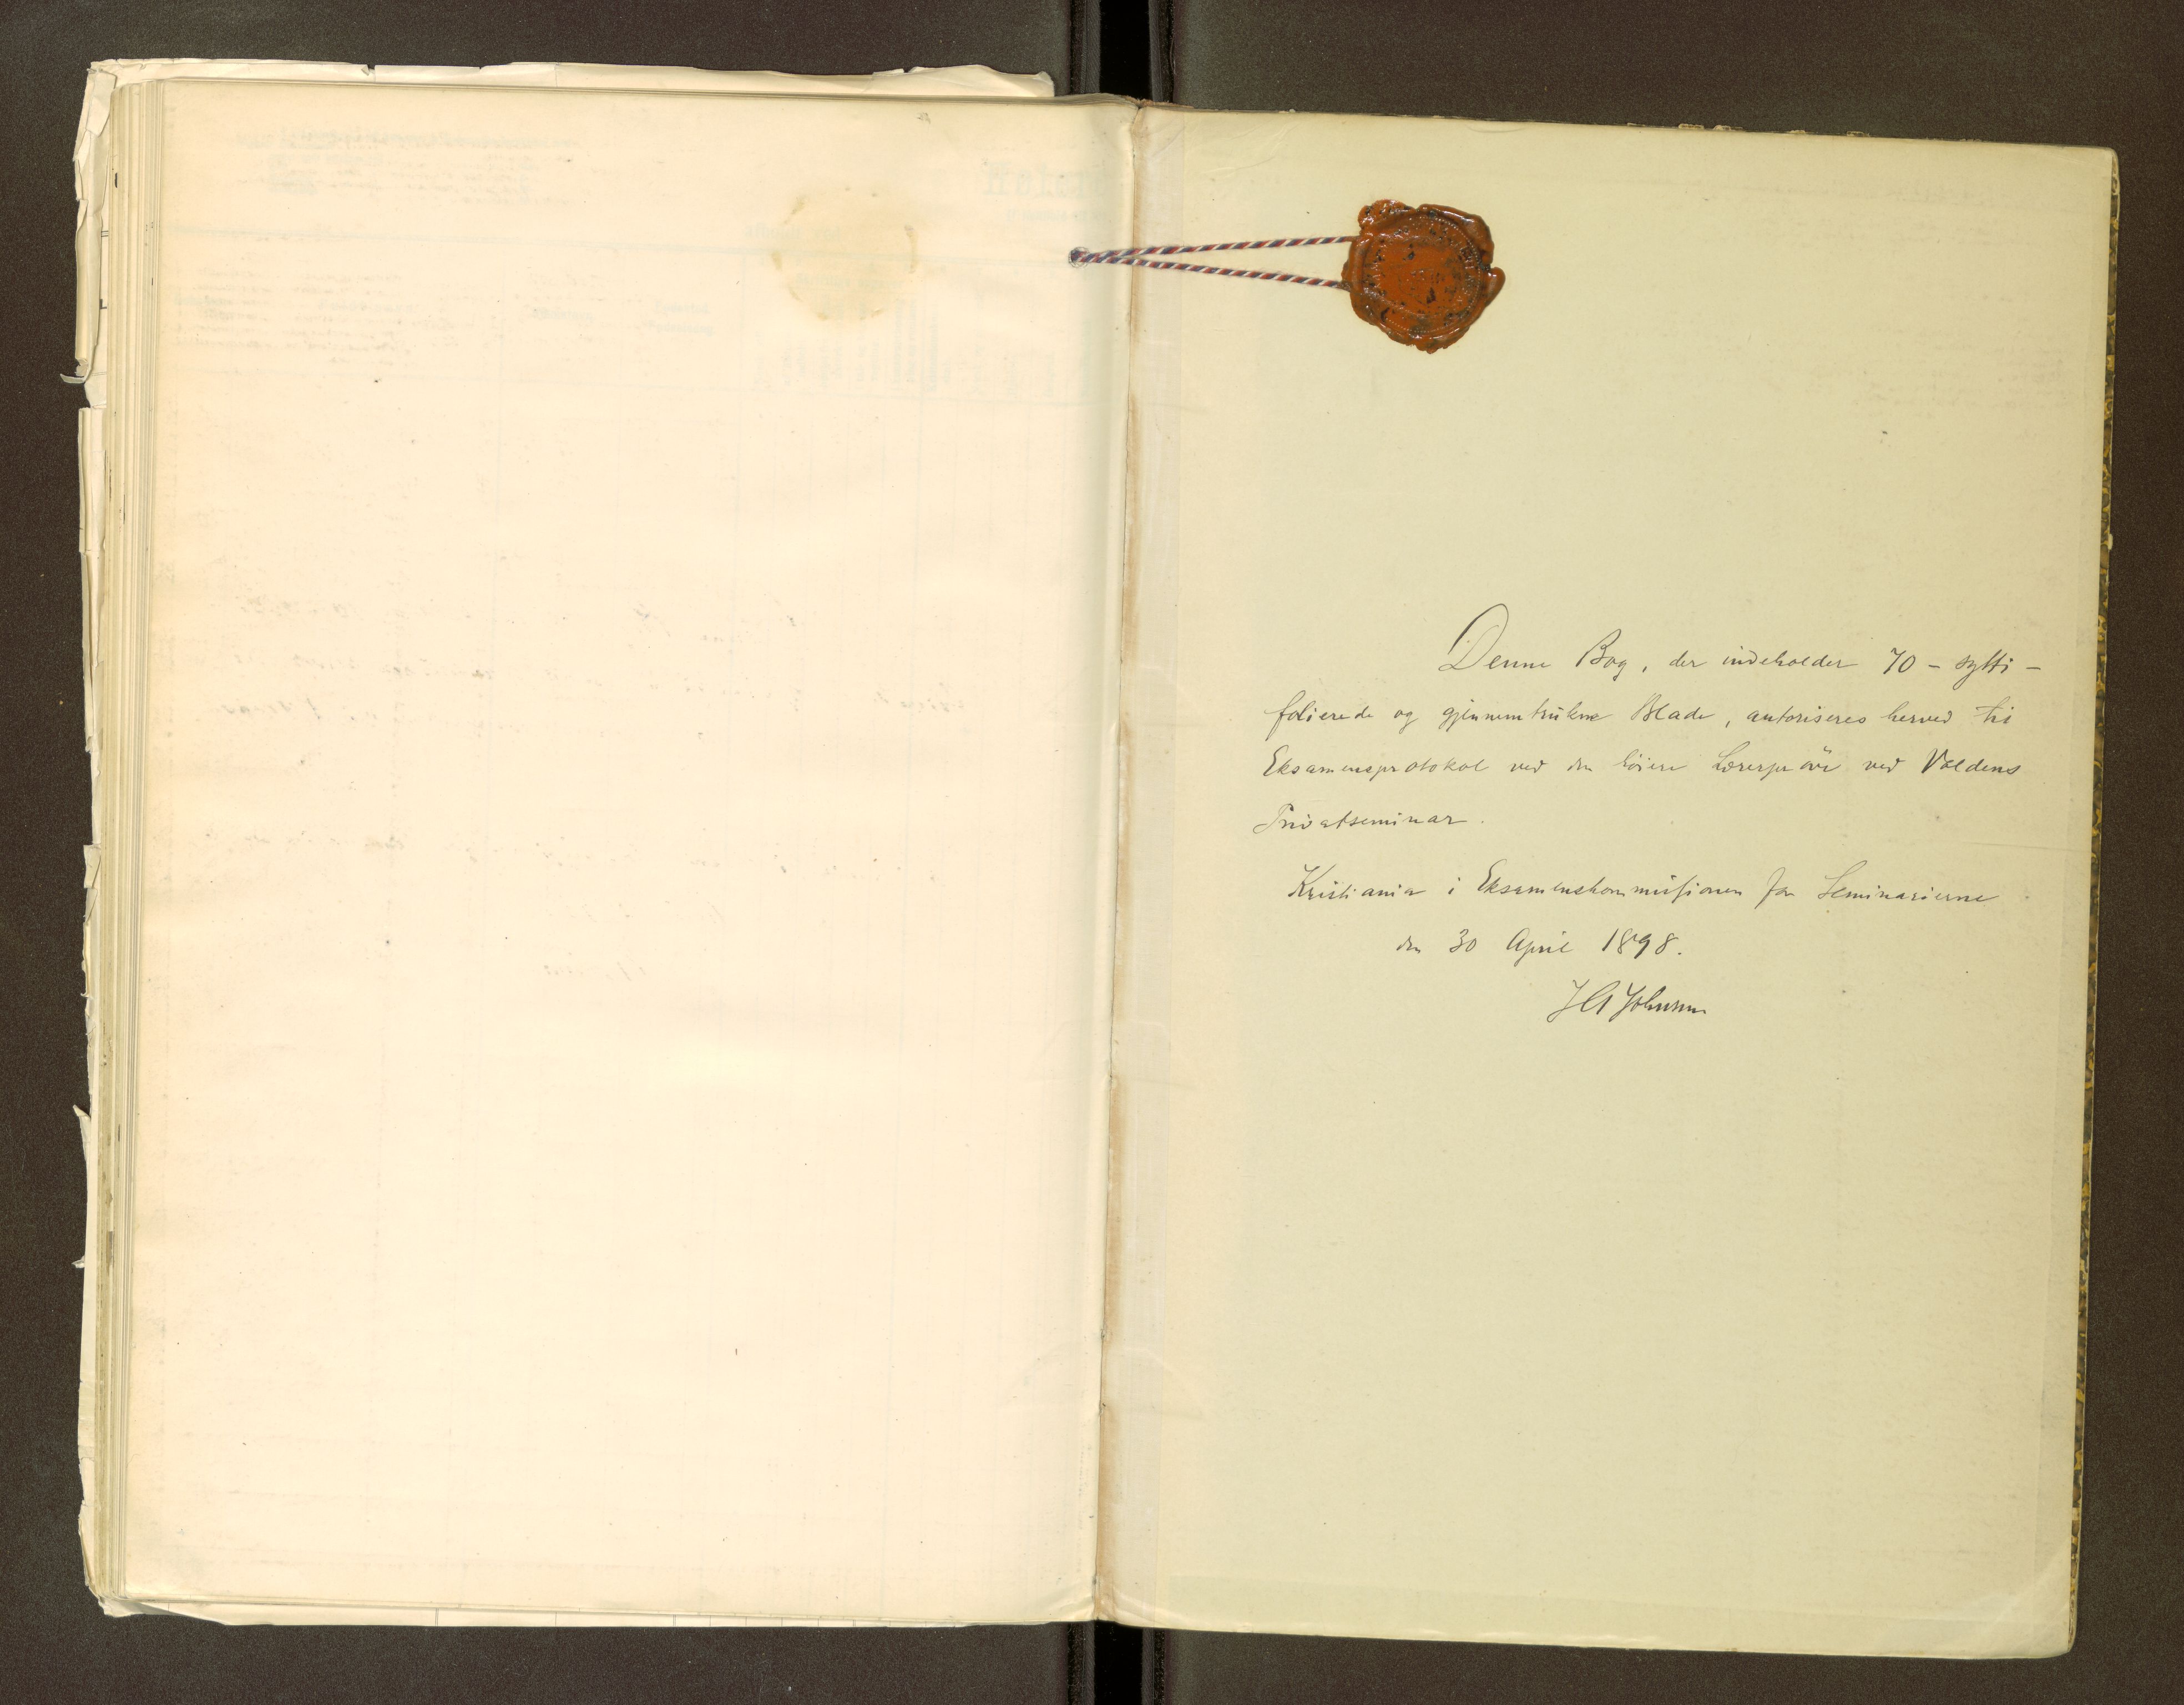 Denne Bog, der indeholder 70 - sytti -
folierede og gjennemtrukne Blade, autoriseres herved til
Eksamensprotokol ved den høiere Lærerprøve ved Voldens
Privatseminar.
Kristiania i Eksamenskommissionen for Seminarierne
den 30 April 1898.
Johnson